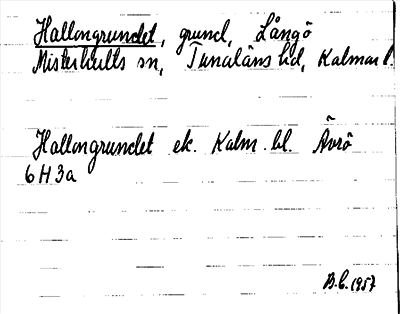 Hallongrundet, grund, Långö
Misterhults sn, Tunaläns hd, Kalmar l.
Hallongrundet ek. Kalm. bl. Ävrö
6H3a
B.C. 1957